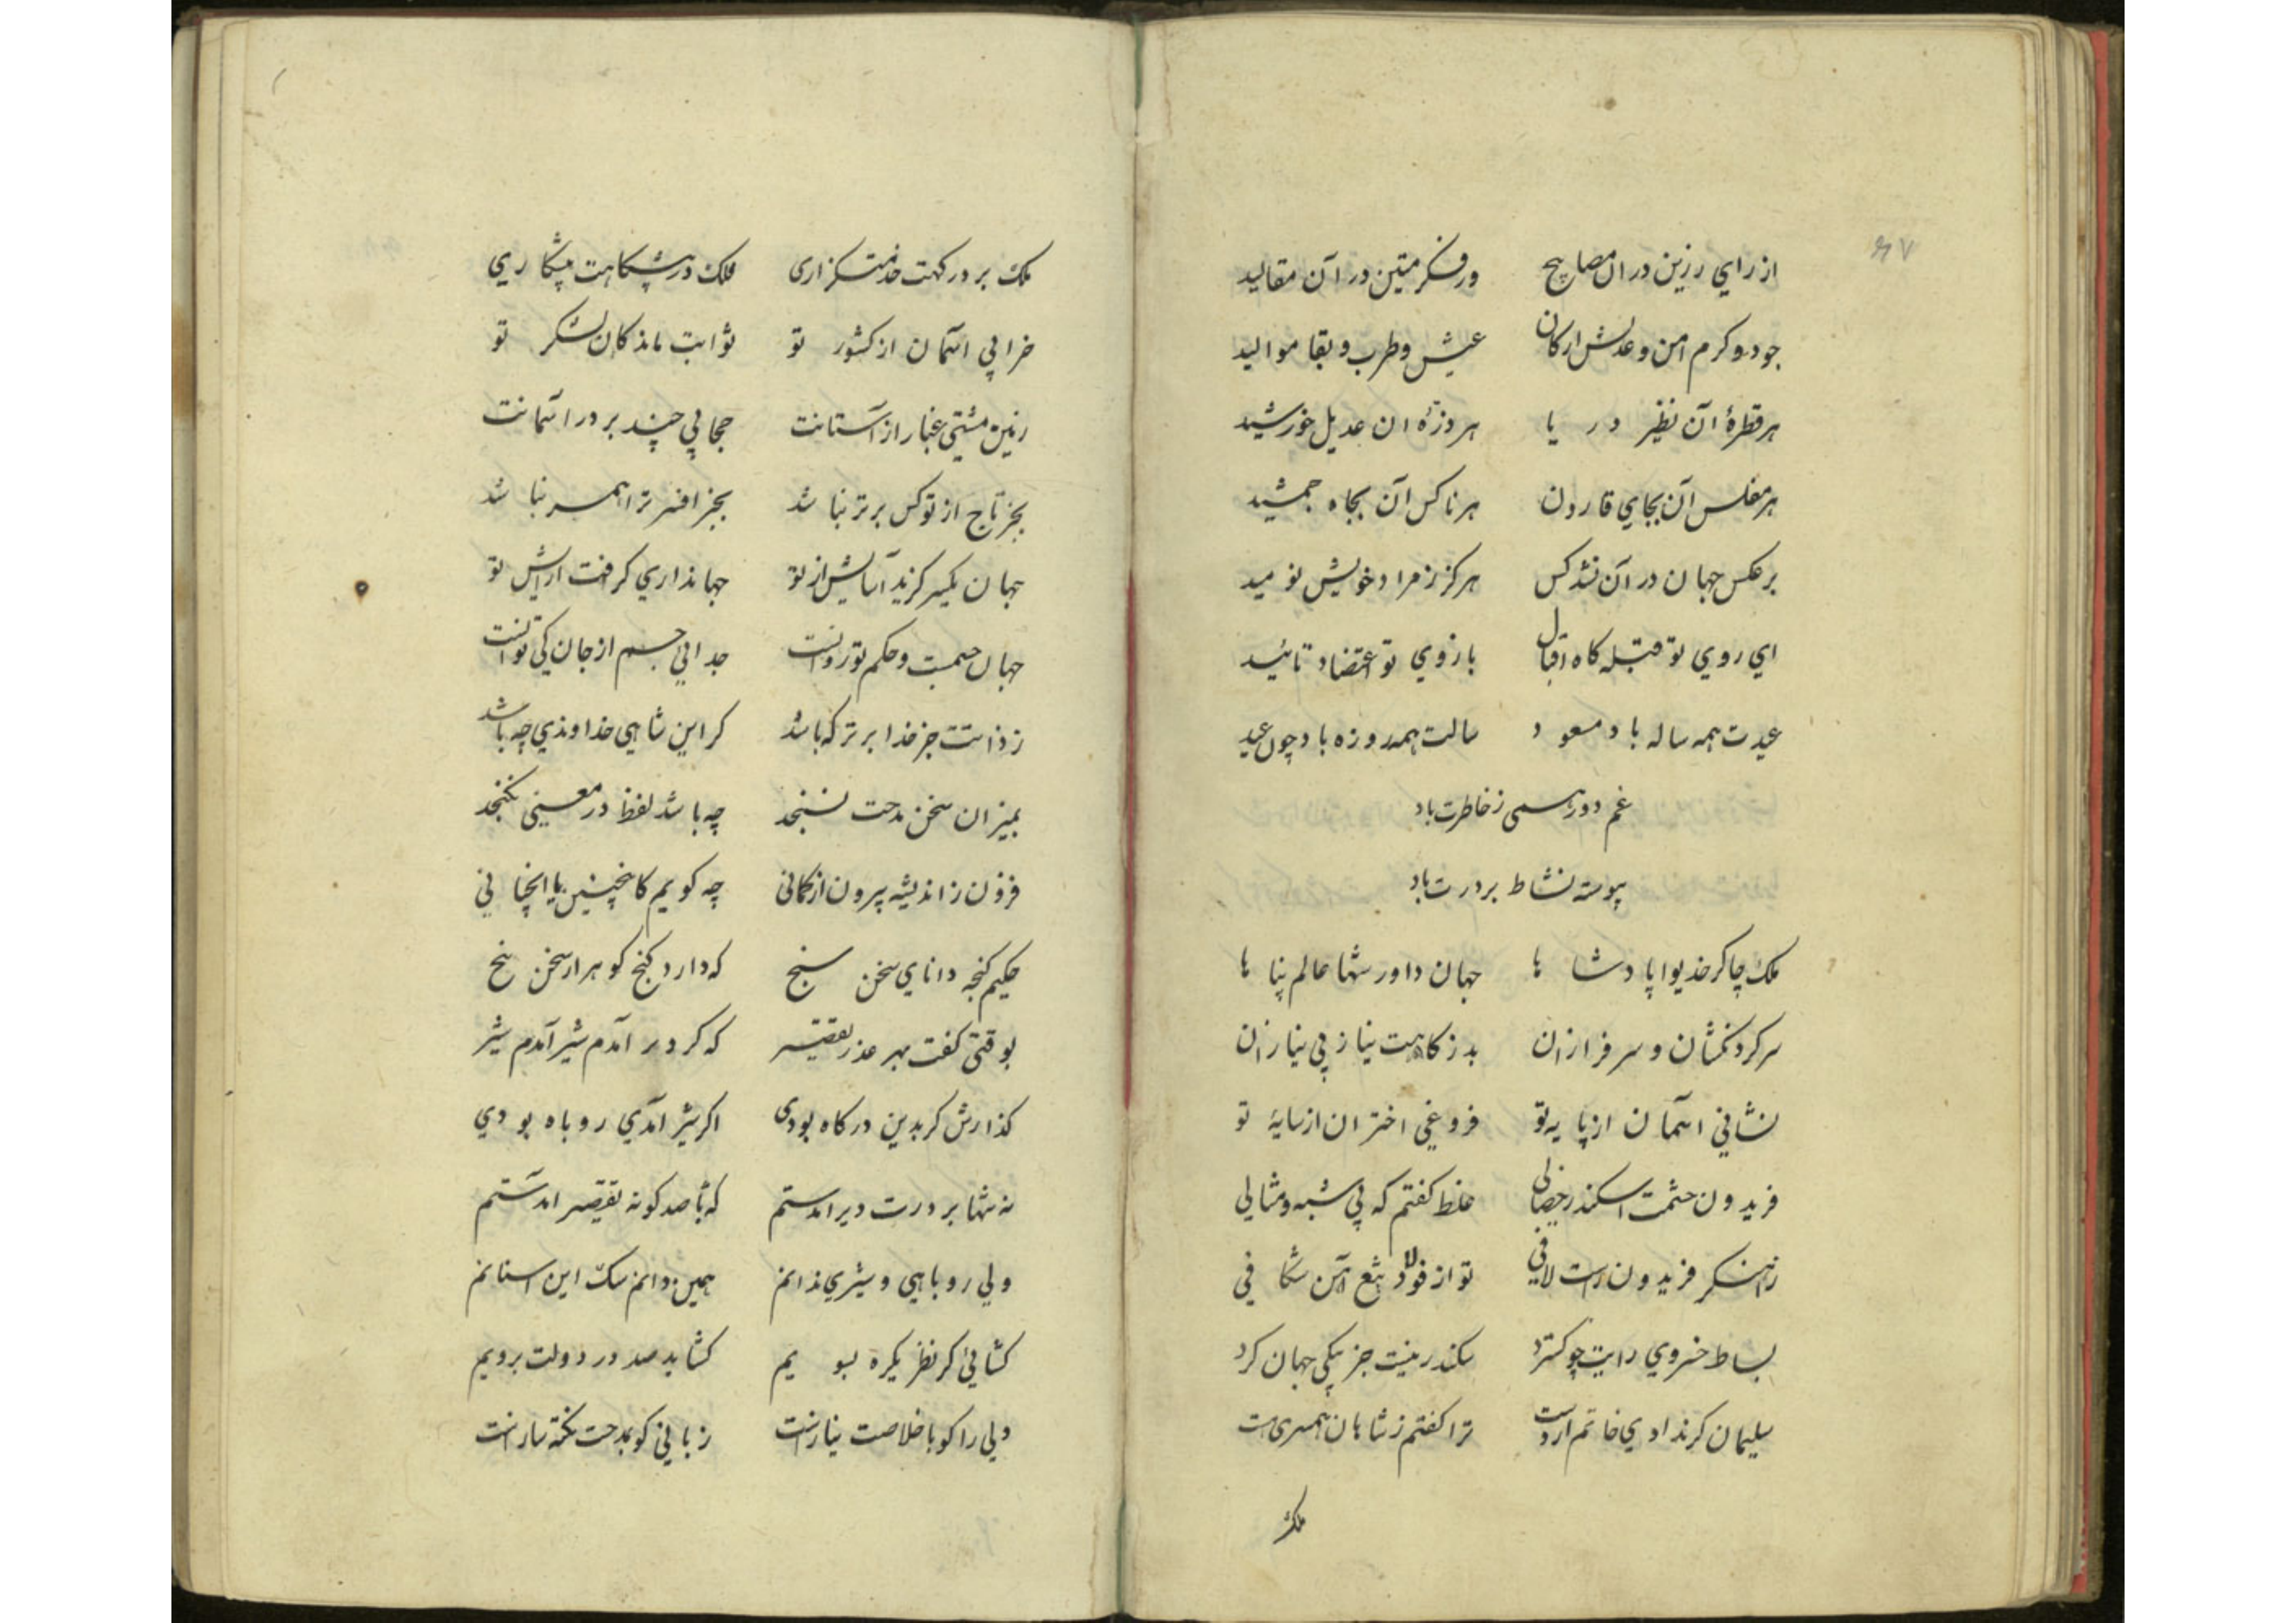 ۶۷
از رای رزین در ان مصابیح ور فکر متین در آن مقالید
جود و کرم امن و عدلش ارکان عیش و طرب و بقا موالید
هر قطرهٔ آن نظیر دریا هر ذرهٔ ان عدیل خورشید
هر مفلس آن بجای قارون هر ناکس آن بجاه جمشید
بر عکس جهان در آن نشد کس هرکز ز مراد خویش نومید
ای روی تو قبله کاه اقبال بازوی تو اعتضاد تائید
عیدت همه ساله باد مسعود سالت همه روزه باد چون عید
غم دور همی ز خاطرت باد
پیوسته نشاط بر درت باد
ملک چاکر خدیوا پادشاها جهان داور شها عالم پناها
سر کردنکشان و سرفرازان بدرکاهت نیاز بی نیازان
نشانی اسمان از پایه تو فروغی اختران از سایهٔ تو
فریدون حشمت اسکندر خصالی غلط کفتم که بی شبه و مثالی
ز آهنکر فریدون راست لافی تو از فولاد تیغ آهن شکافی
بساط خسروی رایت چو کسترد سکندر نیست جز پیکی جهان کرد
سلیمان کر نداد ی خاتم از دست ترا کفتم ز شاهان همسری هست
ملک
ملک بر در کهت خدمتکزاری فلک در پیشکاهت پیشکاری
خرابی اسمان از کشور تو ثوابت ماندکان لشکر تو
زمین مشتی غبار از آستانت حجابی چند بر در اسمانت
بجز تاج از تو کس برتر نباشد بجز افسر ترا همسر نباشد
جهان یکسر کزید آسایش از تو جهانداری کرفت ارایش تو
جهان جسمست و حکم تو روانست جدایی جسم از جان کی توانست
ز ذاتت جز خدا برتر که باشد کر این شاهی خداوندی چه باشد
بمیزان سخن مدحت نسنجد چه باشد لفظ در معنی نکنجد
فزون ز اندیشه بیرون از کمانی چه کویم کاینچنین یا انچنانی
حکیم کنجه دانای سخن سنج که دارد کنج کوهر از سخن پنج
بوقتی کفت بهر عذر تقصیر که کر دیر آمدم شیر آمدم شیر
کذارش کر بدین درکاه بودی اکر شیر آمدی روباه بودی
نه تنها بر درت دیر امدستم که با صد کونه تقصیر امدستم
ولی روباهی و شیری ندانم همین دانم سک این استانم
کشایی کر نظر یکره بسویم کشاید صد در دولت برویم
دلی را کو باخلاصت نیاز است زبانی کو بمدحت نکته ساز است